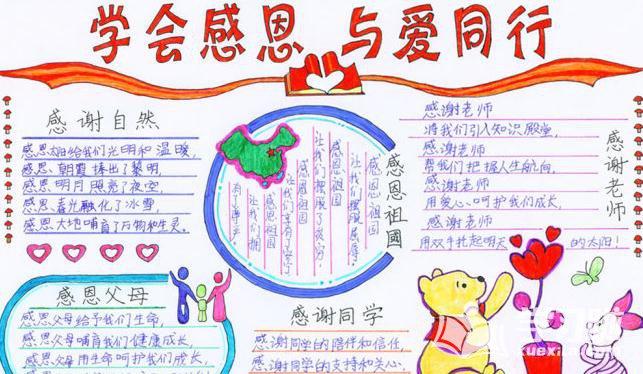 学会感恩 与爱同行
感谢自然
感恩太阳给我们光明和温暖,
感恩朝霞捧出了黎明,
感恩明月照亮了夜空,
感恩春光融化了冰雪,
感恩大地哺育了万物和生灵。
感恩祖國
感恩祖国
让我们摆脱屈辱,
感恩祖国
让我们摆脱了贫穷,
感恩祖国
让我们享有了安宁
感恩祖国
让我们拥
有了尊严。
感谢老师
感谢老师
将我们引入知识殿堂,
感谢老师
帮我们把握人生航向,
感谢老师
用爱心呵护我们成长,
感谢老师
用双手托起明天的太阳!
感恩父母
感恩父母给予我们生命,
感恩父母哺育我们健康成长,
感恩父母用生命呵护我们成长,
感谢同学
感谢同学的陪伴和信任,
感谢同学的支持和关心,